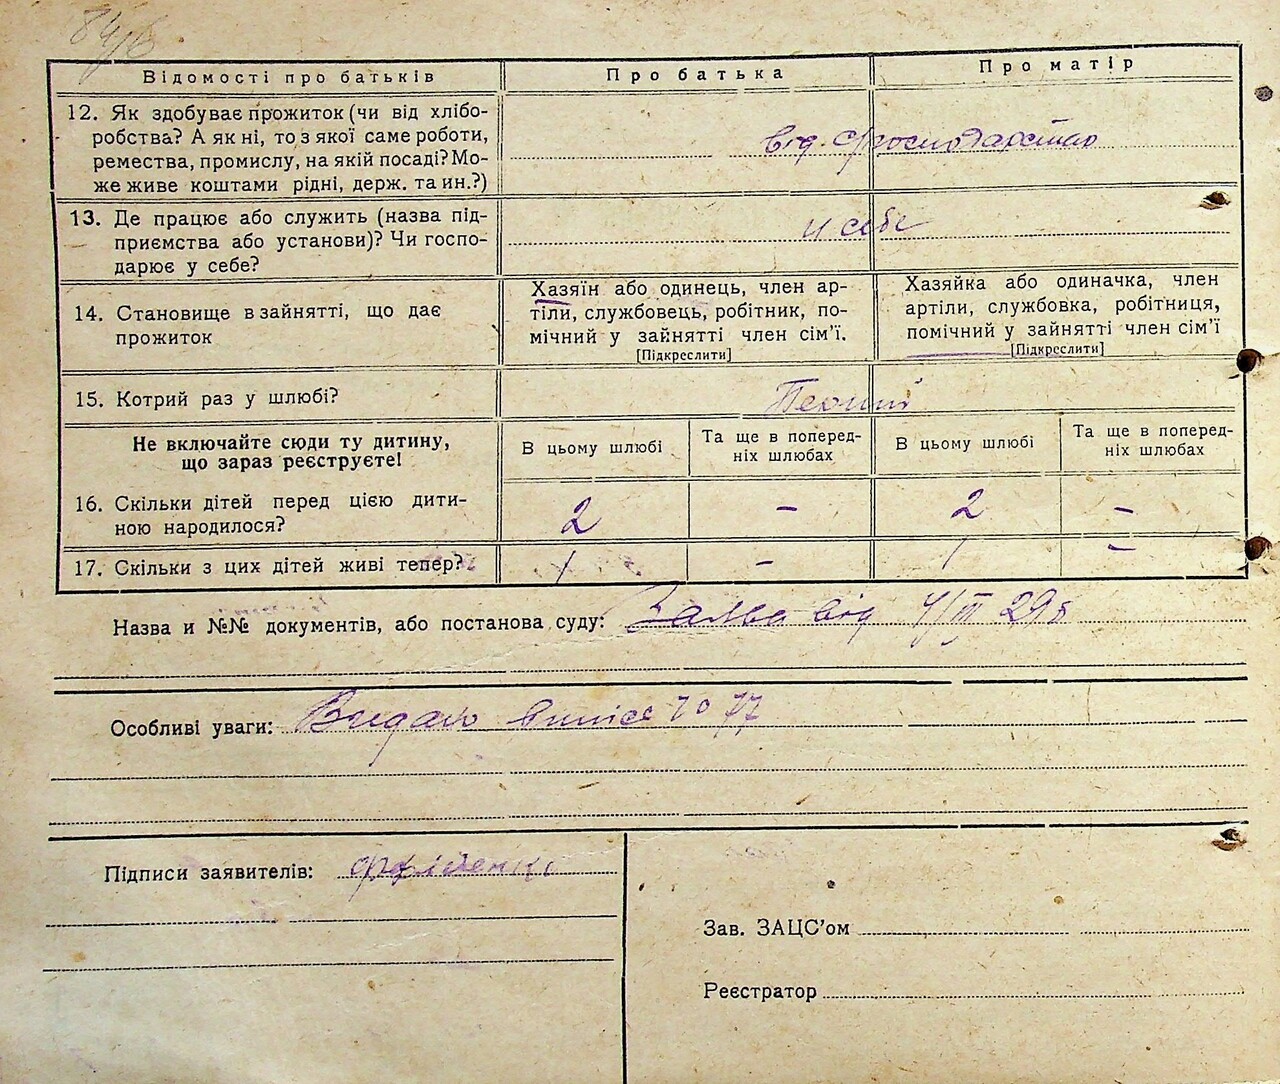 84/6
Відомості про батьків
Про батька
Про матір
12. Як здобуває прожиток (чи від хлібо-
робства? А як ні, то з якої саме роботи,
ремества, промислу, на якій посаді? Мо-
же живе коштами рідні, держ. та ин.?)
від
13. Де працює або служить (назва під-
приємства або установи)? Чи госпо-
дарює у себе?
у себе
14. Становище в зайнятті, що дає
прожиток
Хазяїн або одинець, член ар-
тіли, службовець, робітник, по-
мічний у зайнятті член сім’ї.
[Підкреслити]
Хазяйка або одиначка, член
артіли, службовка, робітниця,
помічний у зайнятті член сім’ї
[Підкреслити]
15. Котрий раз у шлюбі?
Не включайте сюди ту дитину,
що зараз реєструєте!
В цьому шлюбі
Та ще в поперед-
ніх шлюбах
В цьому шлюбі
Та ще в поперед-
ніх шлюбах
16. Скільки дітей перед цією дити-
ною народилося?
2 - 2 -
17. Скільки з цих дітей живі тепер?
1 - 1 -
Назва и №№ документів, або постанова суду: від
Особливі уваги: Видано
Підписи заявителів:
Зав. ЗАЦС’ом
Реєстратор